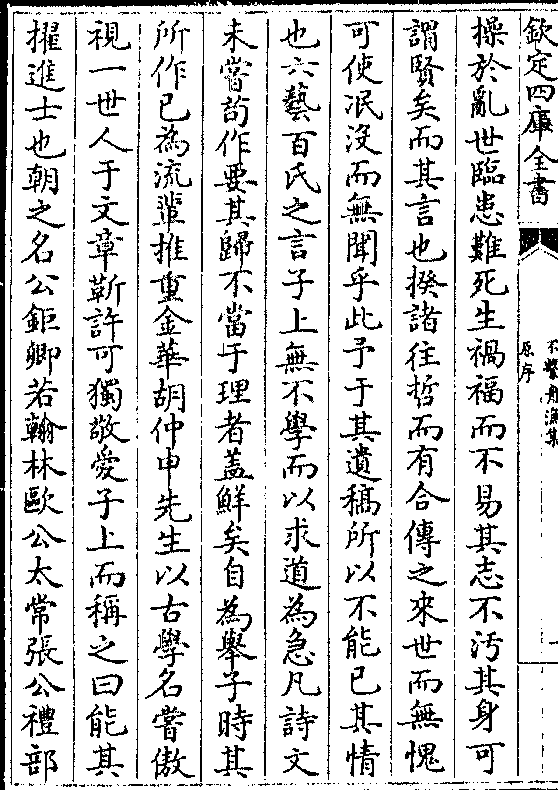 欽定四庫全書
不繫舟漁集
原序
一
操於亂世臨患難死生禍福而不易其志不汚其身可
謂賢矣而其言也揆諸往哲而有合傳之來世而無愧
可使泯没而無聞乎此予于其遺稿所以不能已其情
也六藝百氏之言子上無不學而以求道為急凡詩文
未嘗茍作要其歸不當于理者蓋鮮矣自為舉子時其
所作已為流輩推重金華胡仲申先生以古學名嘗傲
視一世人于文章靳許可獨敬愛子上而稱之曰能其
擢進士也朝之名公鉅卿若翰林歐公太常張公禮部